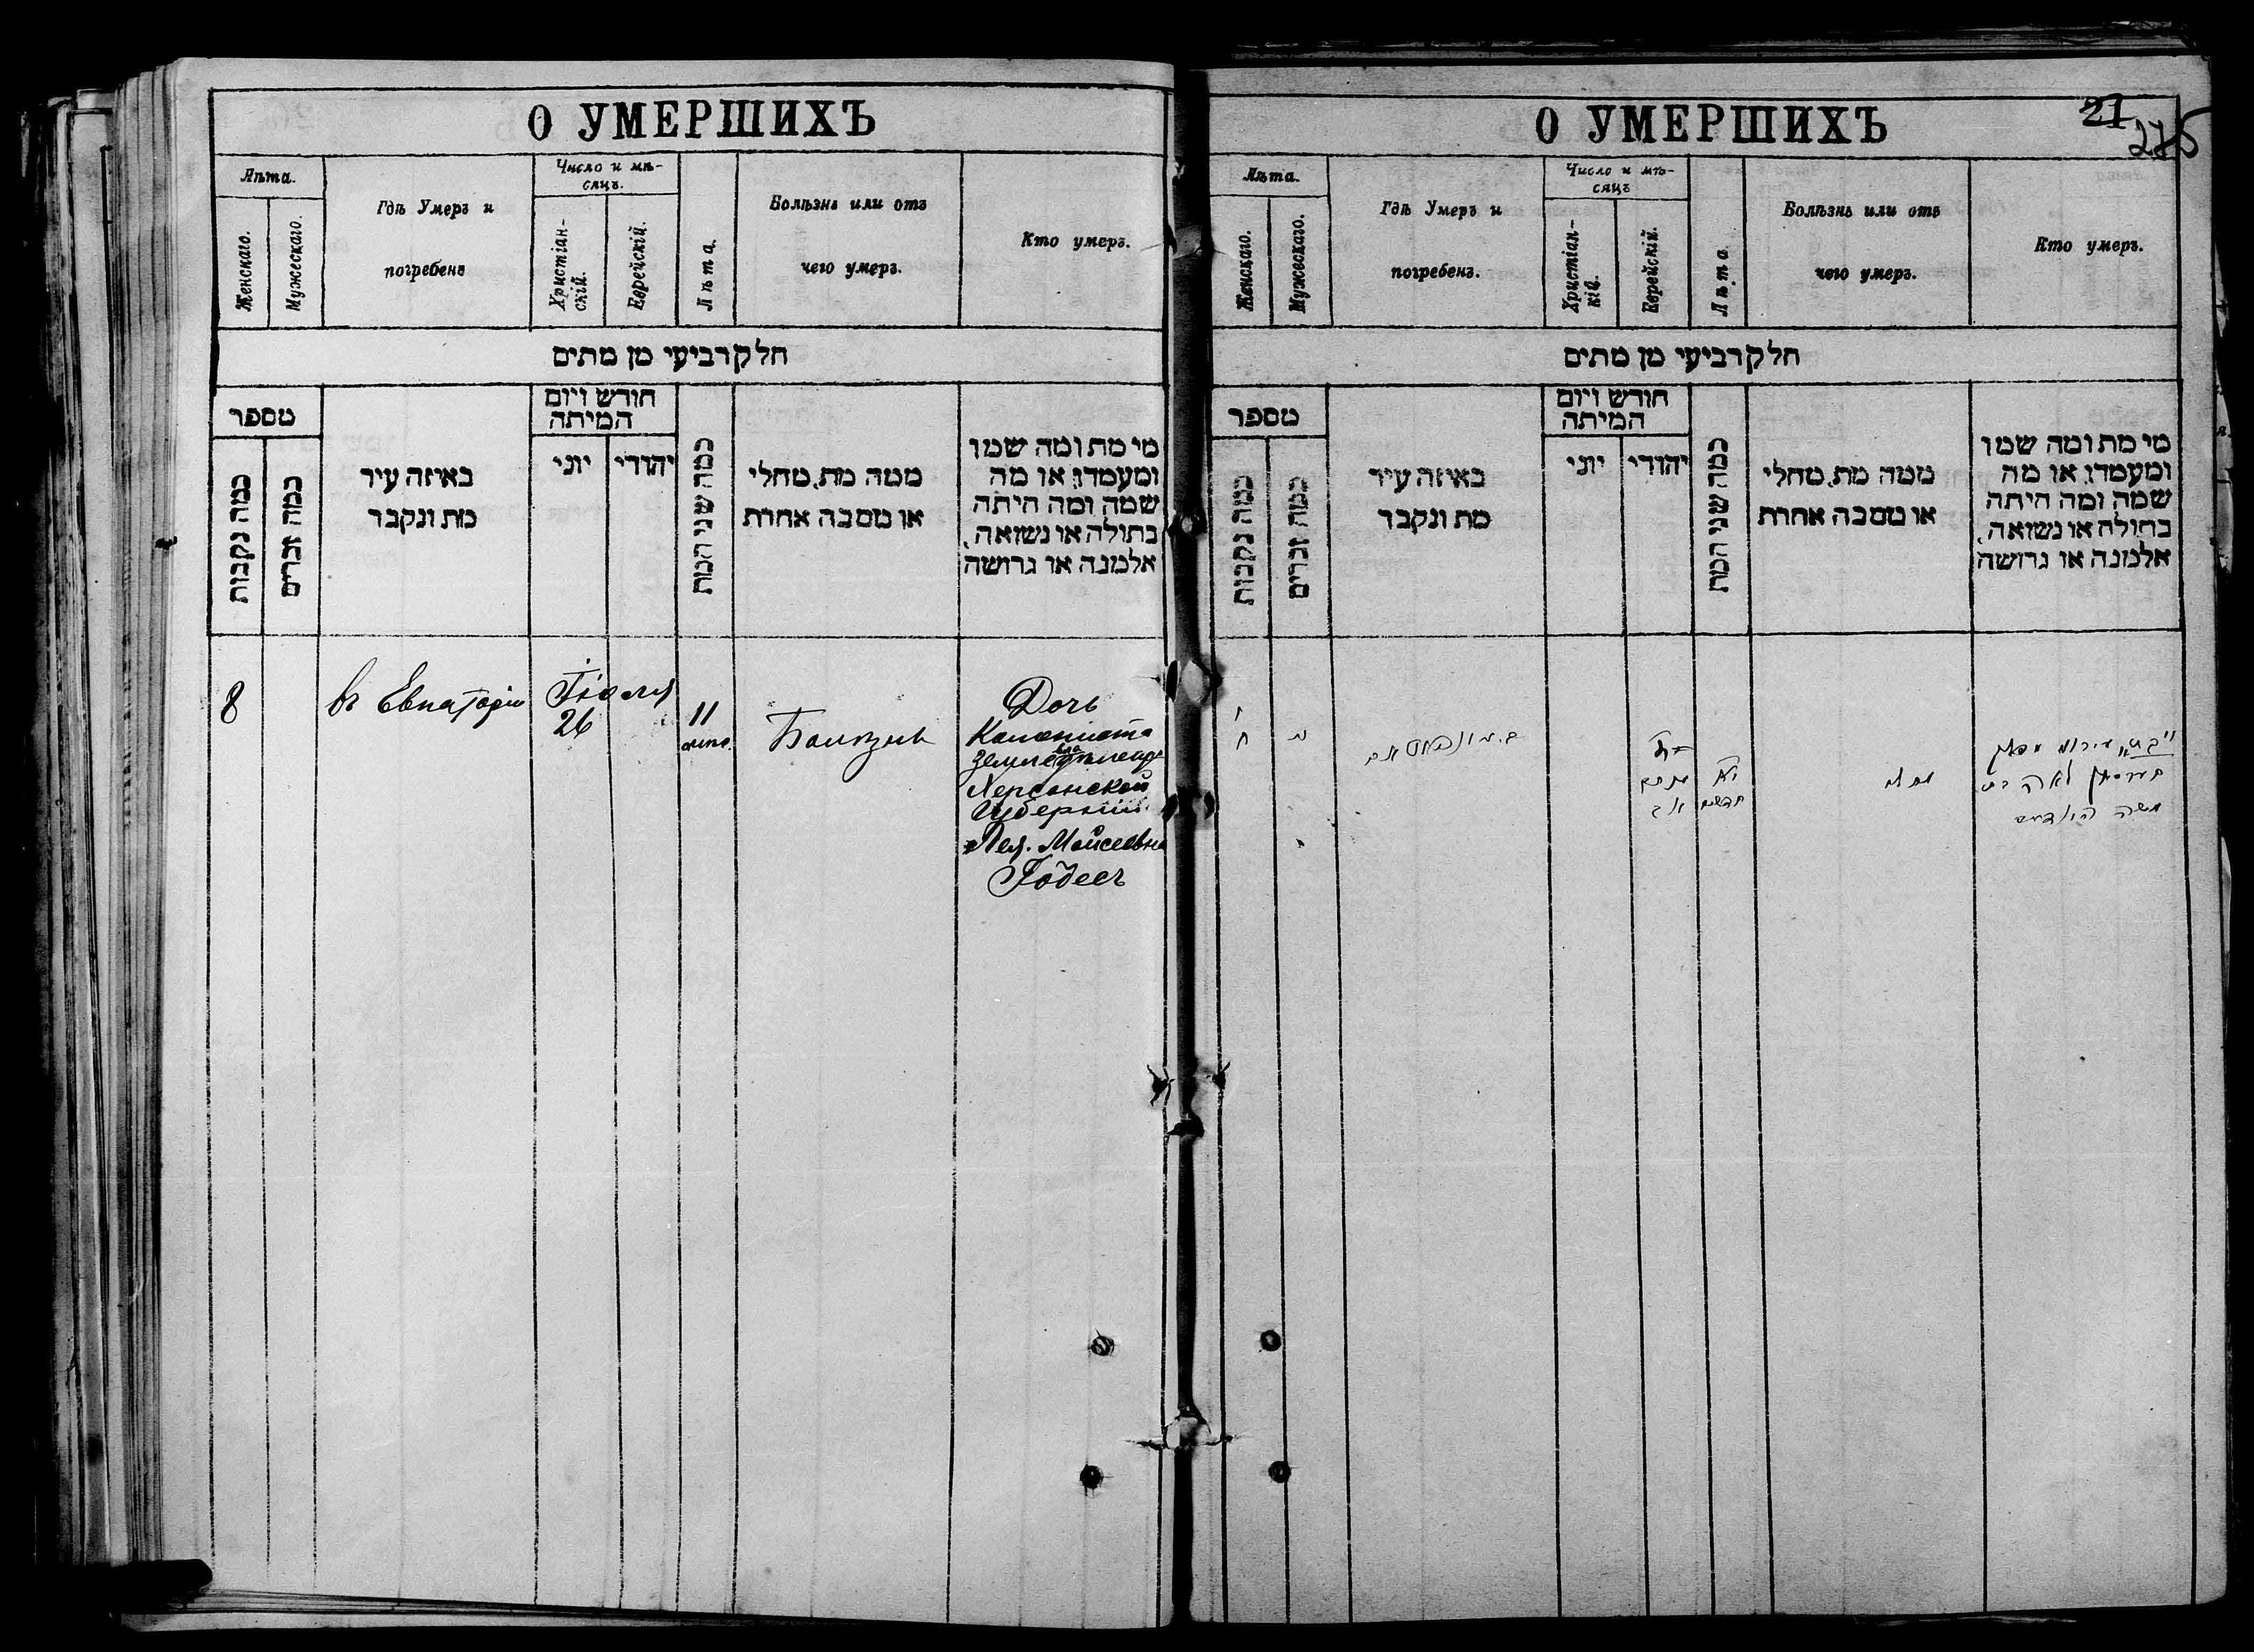 О УМЕРШИХЪ
Лѣта.
Женскаго.
Мужескаго.
Гдѣ Умеръ и
погребенъ
Число и мѣ-
сяцъ.
Христіан-
скій.
Еврейскій.
Лѣта.
Болѣзнь или отъ
чего умеръ.
Кто умеръ.
חלק רביעי מן מתים
מספר
כמה נקבות
כמה זכרים
באיזה עיר
מת ונקבר
חודש ויום
המיתה
יוני
יהודי
כמה שני המת
ממה מת, מחלי
או מסבה אחרת
מי מת ומה שמו
ומעמדו, או מה
שמה ומה היתה
בתולה או נשואה,
אלמנה או גרושה
8
въ Евпаторіи
Іюля
26
11
Дочь
Херсонской
Губерніи
Лея Мойсеевна
О УМЕРШИХЪ
21
Лѣта.
Женскаго.
Мужескаго.
Гдѣ Умеръ и
погребенъ.
Число и мѣ-
сяцъ
Христіан-
кій.
Еврейскій.
Лѣта
Болѣзнь или отъ
чего умеръ.
Кто умеръ.
חלק רביעי מן מתים
מספר
כמה נקבות
כמה זכרים
באיזה עיר
מת ונקבר
חודש ויום
המיתה
יוני
יהודי
כמה שני המת
ממה מת, מחלי
או מסבה אחרת
מי מת ומה שמו
ומעמדו, או מה
שמה ומה היתה
בתולה או נשואה,
אלמנה או גרושה
לאה בת
משה